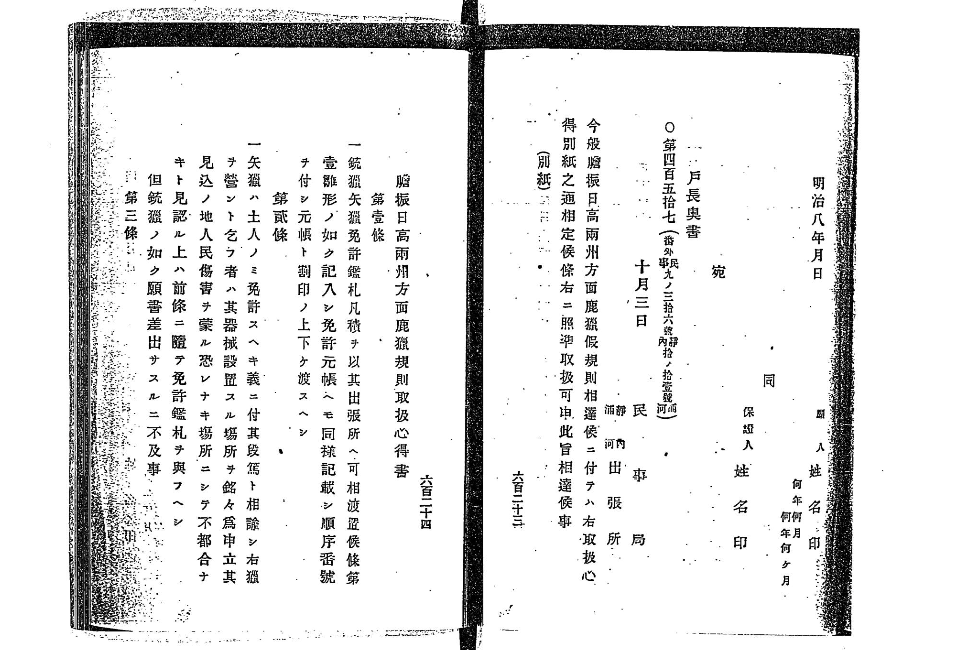 明治八年月日
願人 姓名印
何年何月
何年何ケ月
同
保證人 姓名印
宛
戸長奥書
○第四百五拾七（番外民事九ノ三拾六號靜內拾ノ拾壹號浦河）
十月三日
民事局
靜內
浦河
出張所
今般膽振日高兩州方面鹿獵假規則相達候ニ付テハ右取扱心
得別紙之通相定候條右ニ照準取扱可申此旨相達候事
（別紙）
六百二十三
膽振日高兩州方面鹿獵規則取扱心得書
第壹條
一銃獵矢獵免許鑑札凡積ヲ以其出張所ヘ可相渡置候條第
壹雛形ノ如ク記入シ免許元帳ヘモ同樣記載シ順序番號
ヲ付シ元帳ト割印ノ上下ケ渡スヘシ
第貳條
一矢獵ハ土人ノミ免許スヘキ義ニ付其段篤ト相諭シ右獵
ヲ營ント乞フ者ハ其器械設置スル塲所ヲ銘々爲申立其
見込ノ地人民傷害ヲ蒙ル恐レナキ塲所ニシテ不都合ナ
キト見認ル上ハ前條ニ隨テ免許鑑札ヲ與フヘシ
但銃獵ノ如ク願書差出サスルニ不及事
第三條
六百二十四